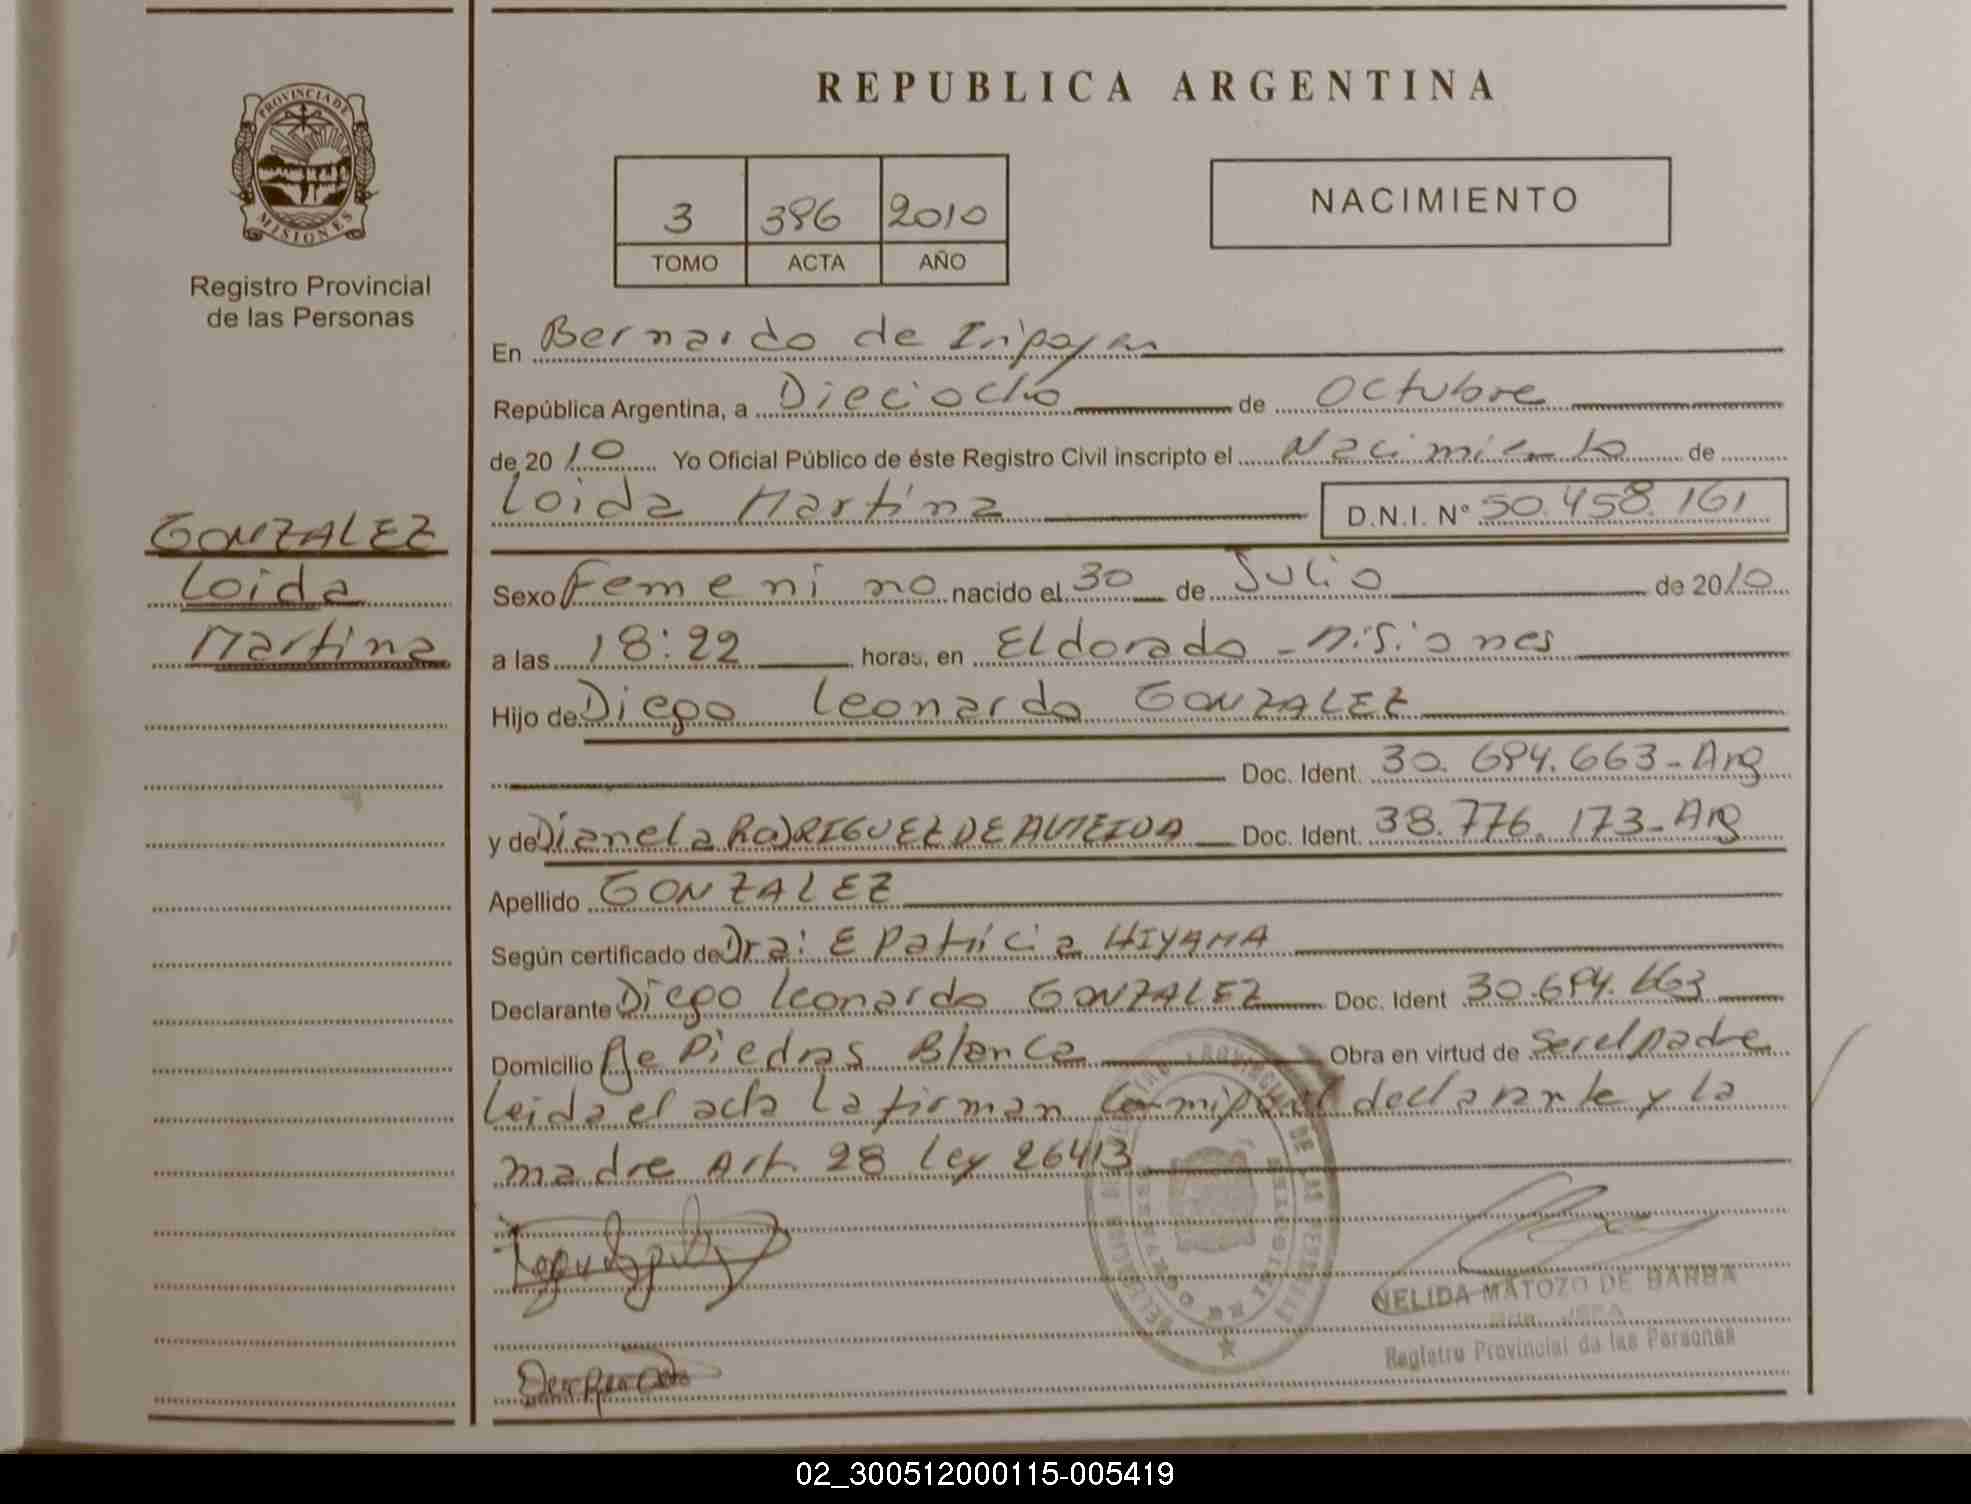 REPUBLICA ARGENTINA
PROVINCIA DE
MISIONES
Registro Provincial
de las Personas
3 396 2010
TOMO ACTA AÑO
NACIMIENTO
En Bernardo de Iripoyen
República Argentina, a Dieciocho de Octubre
de 2010 Yo Oficial Público de éste Registro Civil inscripto el Nacimiento de
Loida Martina D.N.I. N° 50.458.161
GONZALEZ
Loida
Martina
Sexo Femenino nacido el 30 de Julio de 2010
a las 18:22 horas, en Eldorado - Misiones
Hijo de Diego Leonardo GONZALEZ
Doc. Ident. 30.694.663-Arg
y de Dianela RODRIGUEZ DE ALMEIDA Doc. Ident. 38.776.173-Arg
Apellido GONZALEZ
Según certificado de Dra: E Patricia HIYAMA
Declarante Diego Leonardo GONZALEZ Doc. Ident 30.694.663
Domicilio Pje Piedras Blanca Obra en virtud de Ser el padre
Leida el acta la firman conmigo el declarante y la
madre Art. 28 Ley 26413
NELIDA MATOZO DE BARBA
Registro Provincial de las Personas
02_300512000115-005419